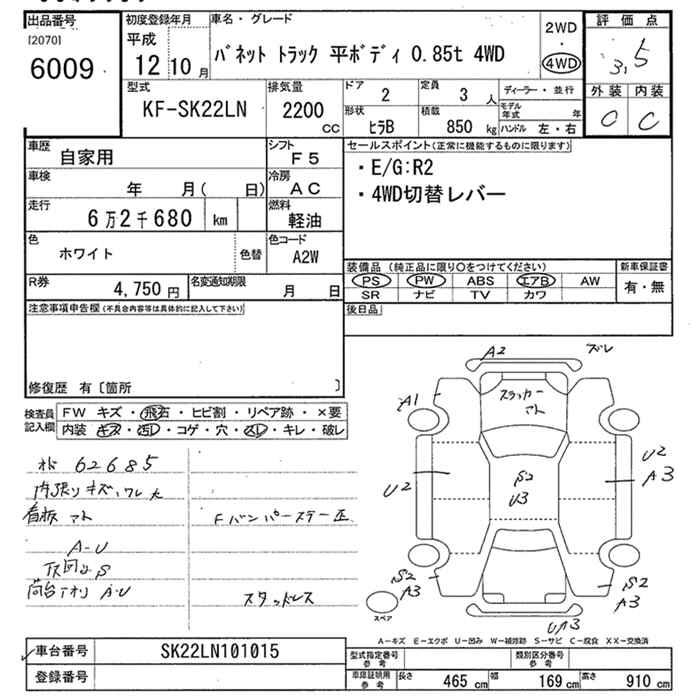 出品番号
[2070]
6009
初度登録年月
平成
12 10 月
車名・グレード
バネット トラック 平ボディ 0.85t 4WD
2WD
・
4WD
評価点
3.5
外装 内装
C
型式
KF-SK22LN
排気量
2200
CC
ドア
2
定員
3 人
形状
ヒラB
積載
850 kg
ディーラー・並行
モデル年式 年
ハンドル 左・右
車歴
自家用
シフト
F5
車検
年 月( 日)
冷房
AC
走行
6万2千680 km
燃料
軽油
色
ホワイト
色替
色コード
A2W
R券
4,750 円
名変通知期限
月 日
セールスポイント(正常に機能するものに限ります)
・E/G:R2
・4WD切替レバー
装備品 (純正品に限り○をつけてください)
PS PW ABS エアB AW
SR ナビ TV カワ
新車保証書
有・無
後日品
注意事項申告欄(不具合内容等は具体的に記入して下さい)
修復歴 有〔箇所 〕
検査員記入欄
FW キズ・飛石・ヒビ割・リペア跡・×要
内装 キズ・汚レ・コゲ・穴・スレ・キレ・破レ
62685
内張りキズ,ワレ大
看板アト
Fバンパーステー正
A-U
荷台アオリ A-U
スタッドレス
A2
ズレ
A1
ステッカーアト
U2
U2
A3
S2
U3
S2
A3
S2
A3
UA3
スペア
A-キズ E-エクボ U-凹み W-補修跡 S-サビ C-腐食 XX-交換済
車台番号
SK22LN101015
登録番号
型式指定番号 参考
類別区分番号 参考
車庫証明用 参考
長さ 465 cm 幅 169 cm 高さ 910 cm